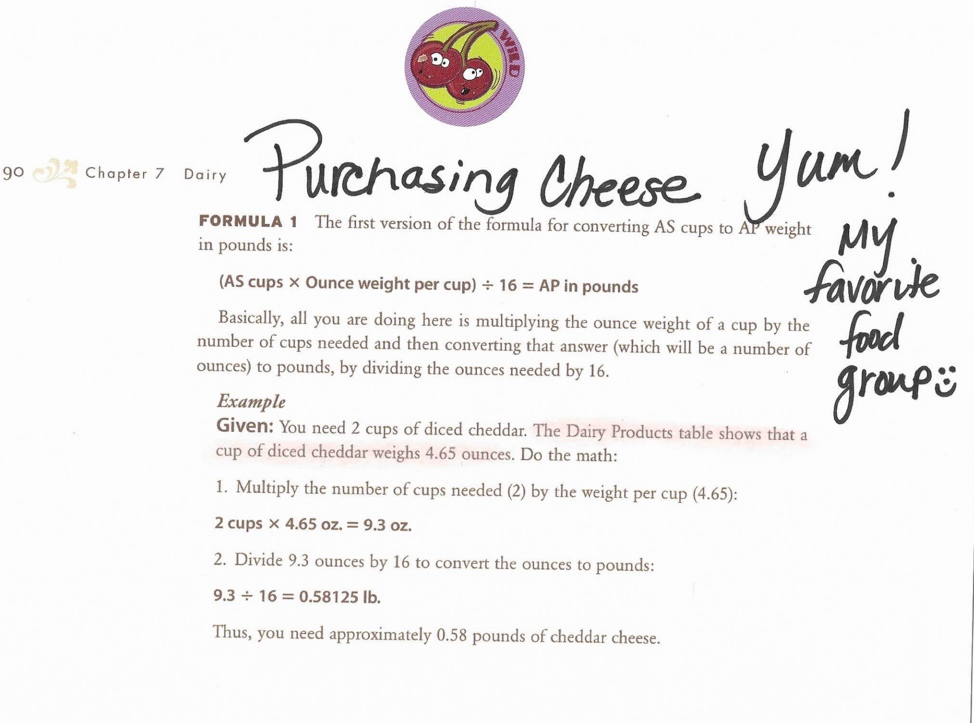 WiLD
90 Chapter 7 Dairy
Purchasing Cheese Yum!
My
favorite
food
group
FORMULA 1 The first version of the formula for converting AS cups to AP weight
in pounds is:
(AS cups × Ounce weight per cup) ÷ 16 = AP in pounds
Basically, all you are doing here is multiplying the ounce weight of a cup by the
number of cups needed and then converting that answer (which will be a number of
ounces) to pounds, by dividing the ounces needed by 16.
Example
Given: You need 2 cups of diced cheddar. The Dairy Products table shows that a
cup of diced cheddar weighs 4.65 ounces. Do the math:
1. Multiply the number of cups needed (2) by the weight per cup (4.65):
2 cups × 4.65 oz. = 9.3 oz.
2. Divide 9.3 ounces by 16 to convert the ounces to pounds:
9.3 ÷ 16 = 0.58125 lb.
Thus, you need approximately 0.58 pounds of cheddar cheese.